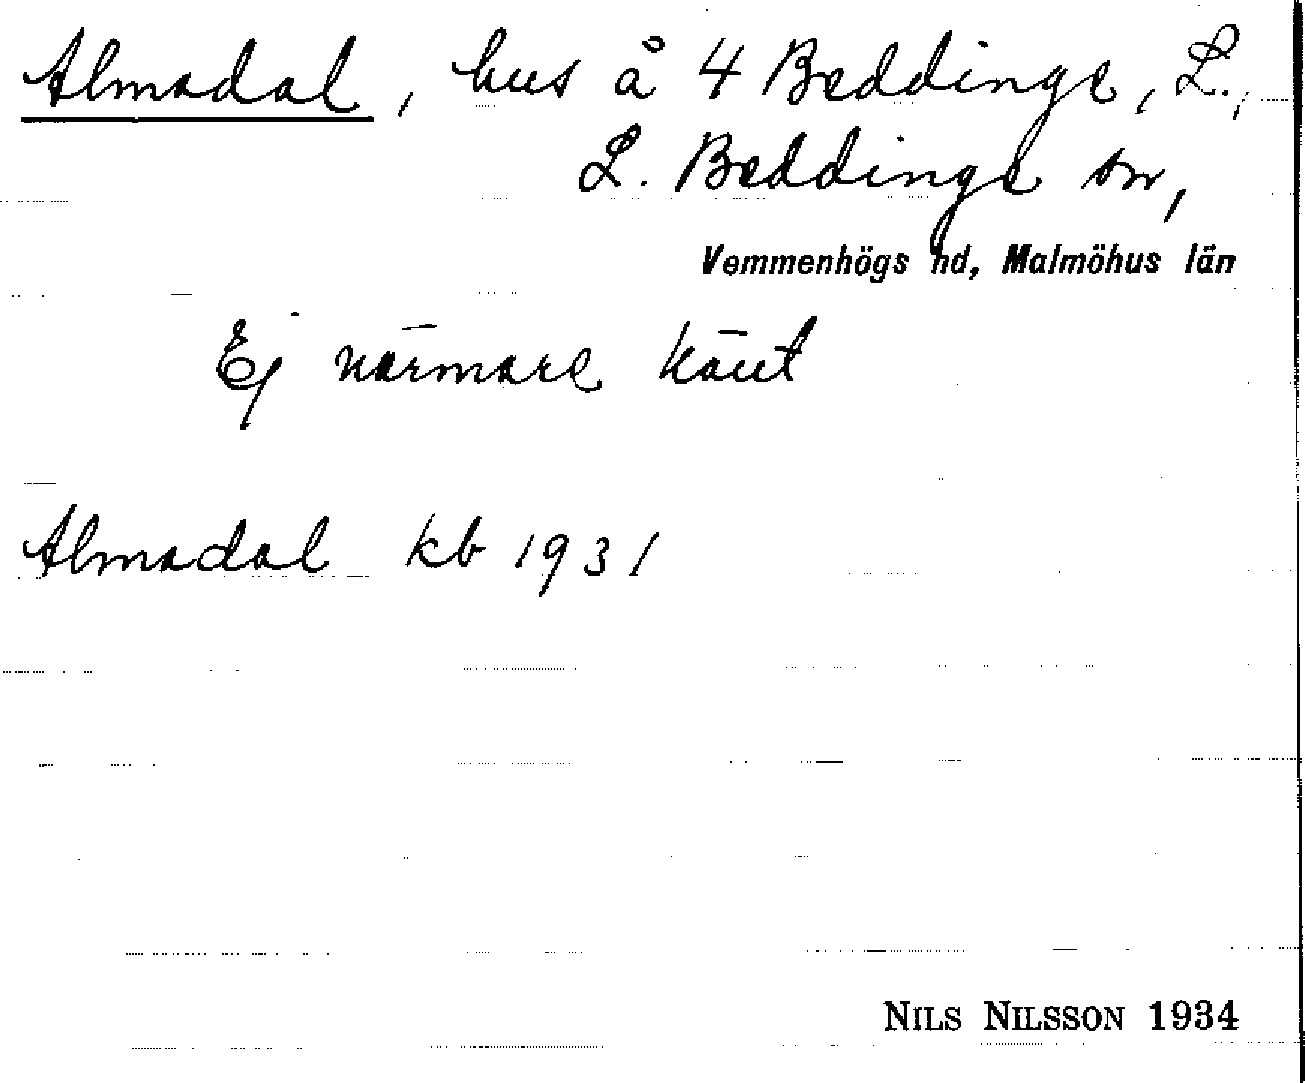 Almadal, hus å 4 Beddinge, L.,
L. Beddinge sn,
Vemmenhögs hd, Malmöhus län
Ej närmare känt
Almadal kb 1931
NILS NILSSON 1934